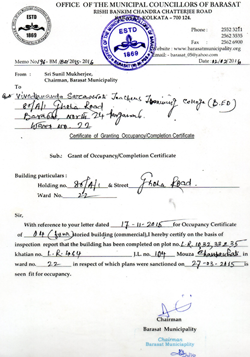 OFFICE OF THE MUNICIPAL COUNCILLORS OF BARASAT
RISHI BANKIM CHANDRA CHATTERJEE ROAD
BARASAT, KOLKATA - 700 124.
ESTD
1869
ESTD
1869
Phone : 2552 3211
2552 3035
Fax : 2562 6900
Website : www.barasatmunicipality.org
From : Sri Sunil Mukherjee,
Chairman, Barasat Municipality
Vivekananda Satyanand Teachers Training College (B.ED)
80/A/1 Ghola Road
Barasat North 24
Ward No. 22
Certificate of Granting Occupancy/Completion Certificate
Sub: Grant of Occupancy/Completion Certificate
Building particulars :
Holding no. 80/A/1 & Street Ghola Road.
Ward No. 22
Sir,
With reference to your letter dated 17-11-2015 for Occupancy Certificate
of 04 (four) storied building (commercial), I hereby certify on the basis of
inspection report that the building has been completed on plot no. L.R. 1032, 33 & 35
khatian no. L.R-464 J.L. no. 104 Mouza
ward no. 22 in respect of which plans were sanctioned on 27-03-2015 is
seen fit for occupancy.
Chairman
Barasat Municipality
Chairman
Barasat Municipality